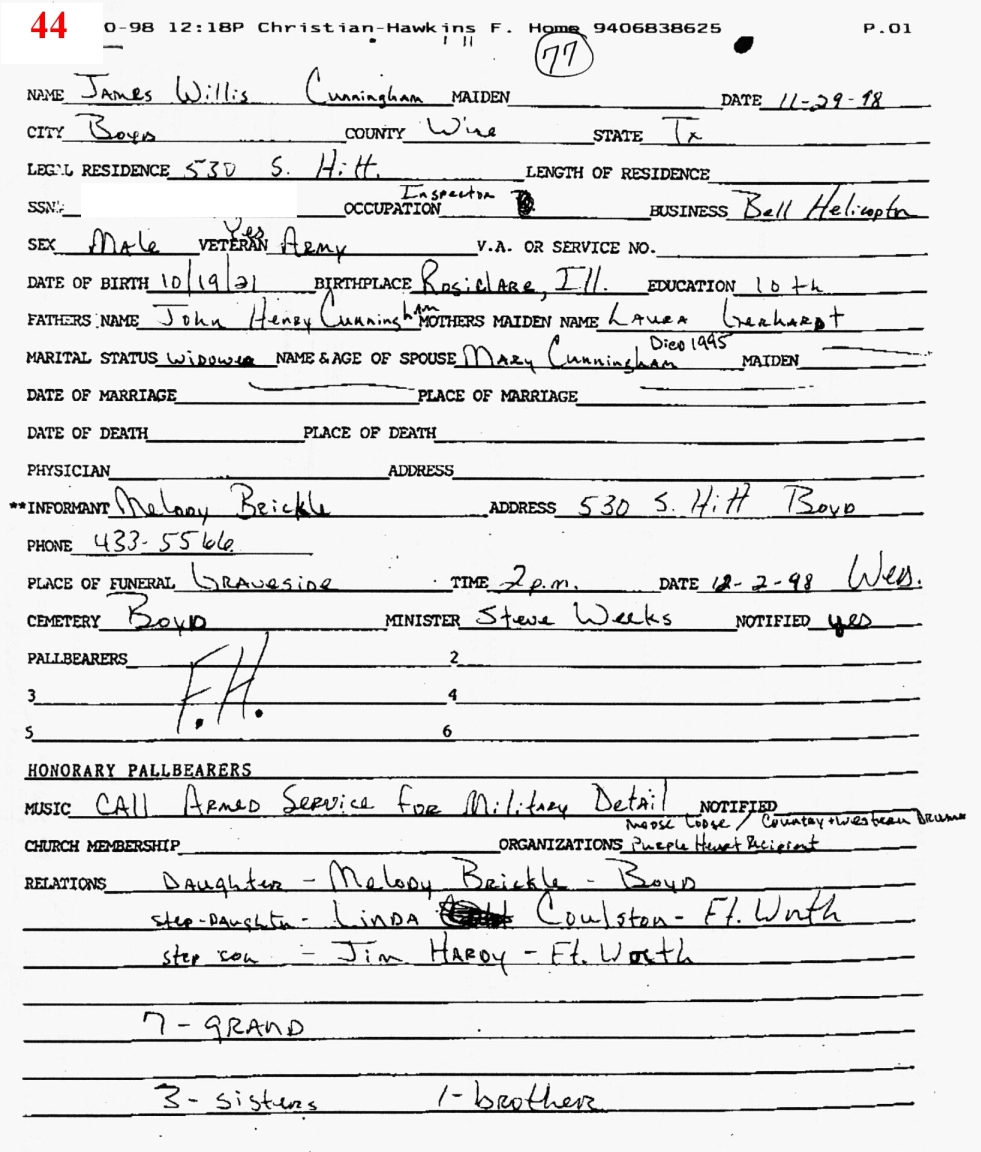 44 0-98 12:18P Christian-Hawkins F. Home 9406838625 P.01
77
NAME James Willis Cunningham MAIDEN DATE 11-29-98
CITY Boyd COUNTY Wise STATE Tx
LEGAL RESIDENCE 530 S. Hitt. LENGTH OF RESIDENCE
SSN# OCCUPATION Inspector BUSINESS Bell Helicoptr
SEX Male VETERAN Yes Army V.A. OR SERVICE NO.
DATE OF BIRTH 10/19/21 BIRTHPLACE Rosiclare, Ill. EDUCATION 10th
FATHERS NAME John Henry Cunningham MOTHERS MAIDEN NAME Laura Gerhardt
MARITAL STATUS Widower NAME & AGE OF SPOUSE Mary Cunningham Died 1995 MAIDEN
DATE OF MARRIAGE PLACE OF MARRIAGE
DATE OF DEATH PLACE OF DEATH
PHYSICIAN ADDRESS
**INFORMANT Melody Brickle ADDRESS 530 S. Hitt Boyd
PHONE 433-5566
PLACE OF FUNERAL Graveside TIME 2 p.m. DATE 12-2-98 Wed.
CEMETERY Boyd MINISTER Steve Weeks NOTIFIED yes
PALLBEARERS 2
F.H.
3 4
5 6
HONORARY PALLBEARERS
MUSIC CALL Armed Service for Military Detail NOTIFIED
Moose Lodge / Country + Western
CHURCH MEMBERSHIP ORGANIZATIONS Purple Heart Recipient
RELATIONS Daughter - Melody Brickle - Boyd
step-Daughtr - Linda Coulston - Ft. Worth
step son - Jim Hardy - Ft. Worth
7 - GRAND
3 - sisters 1 - brother